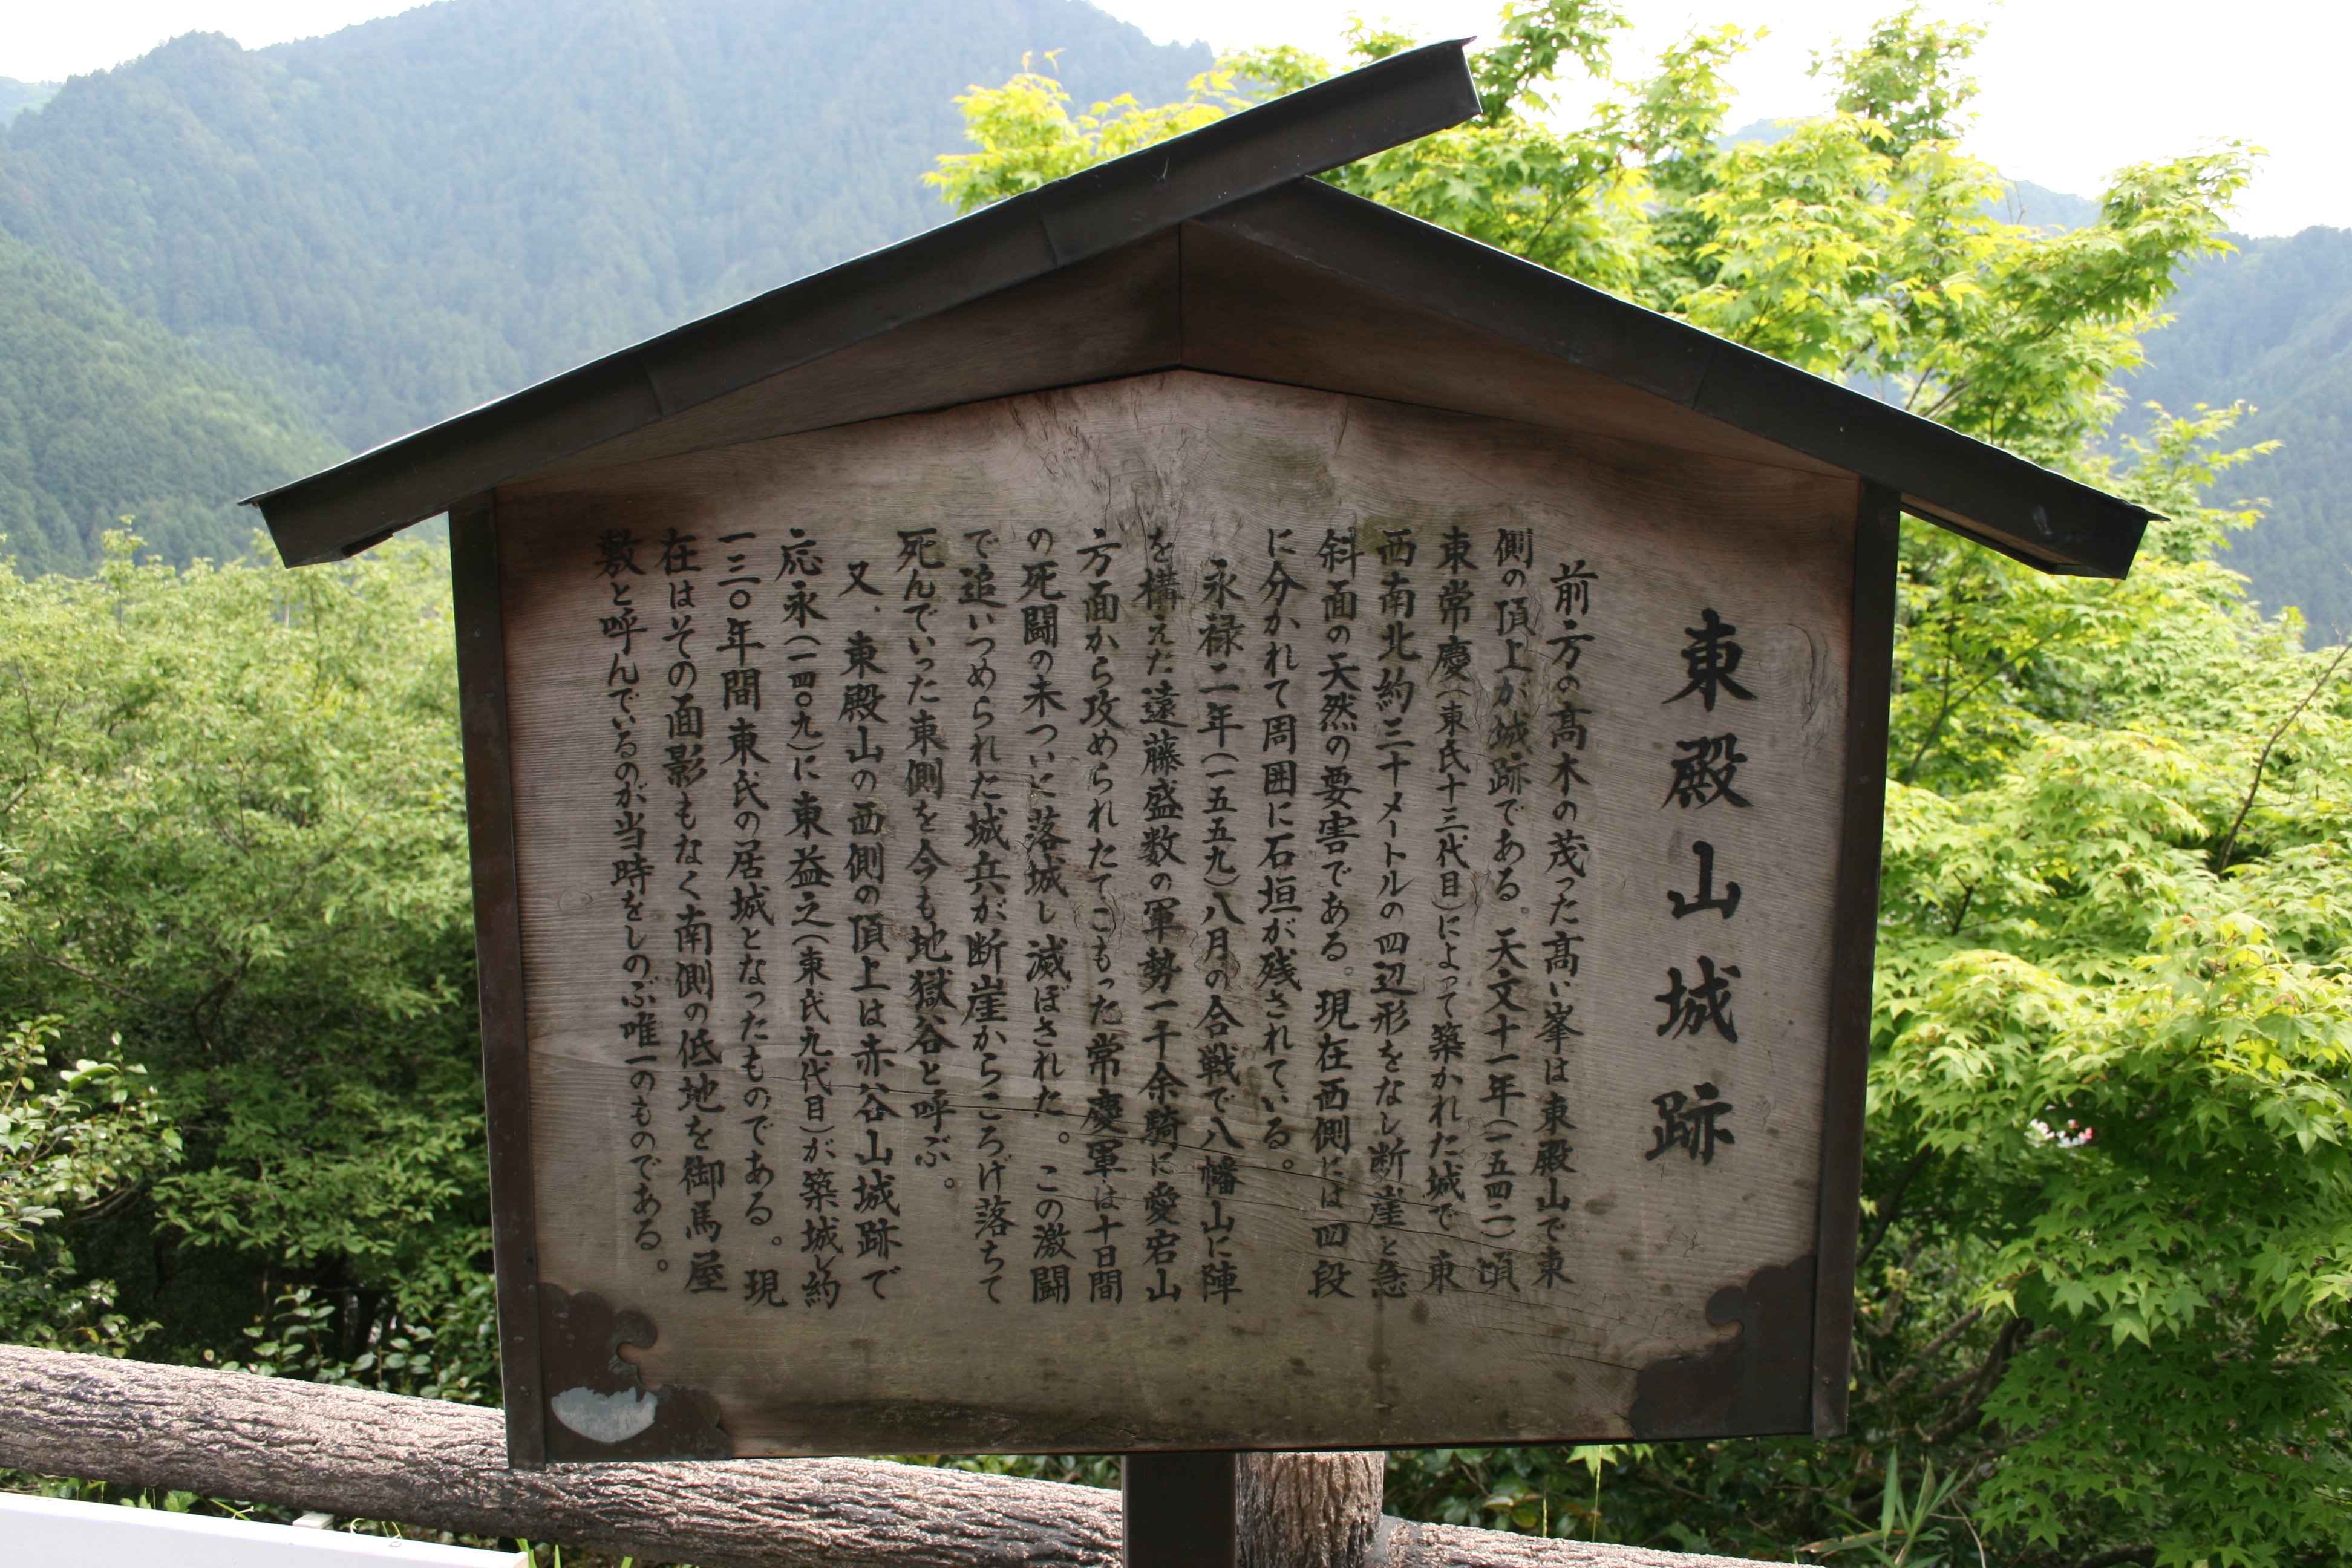 東殿山城跡
前方の高木の茂った高い峯は東殿山で東
側の頂上が城跡である。天文十一年(一五四二)頃
東常慶(東氏十三代目)によって築かれた城で東
西南北約三十メートルの四辺形をなし断崖と急
斜面の天然の要害である。現在西側には四段
に分かれて周囲に石垣が残されている。
永禄二年(一五五九)八月の合戦で八幡山に陣
を構えた遠藤盛数の軍勢一千余騎に愛宕山
方面から攻められたてこもった常慶軍は十日間
の死闘の末ついに落城し滅ぼされた。この激闘
で追いつめられた城兵が断崖からころげ落ちて
死んでいった東側を今も地獄谷と呼ぶ。
又、東殿山の西側の頂上は赤谷山城跡で
応永(一四〇九)に東益之(東氏九代目)が築城し約
一三〇年間東氏の居城となったものである。現
在はその面影もなく南側の低地を御馬屋
敷と呼んでいるのが当時をしのぶ唯一のものである。